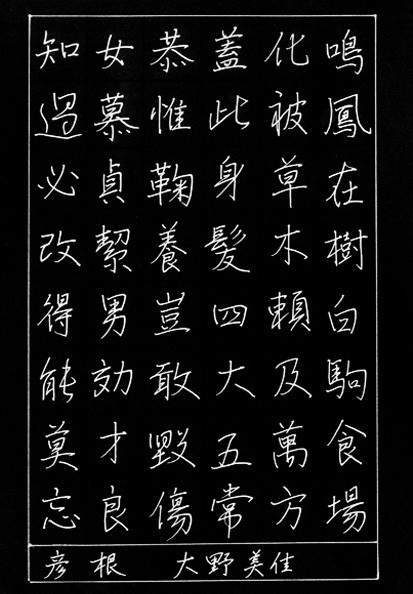 鳴鳳在樹白駒食場
化被草木頼及萬方
蓋此身髮四大五常
恭惟鞠養豈敢毀傷
女慕貞絜男効才良
知過必改得能莫忘
彦根 大野美佳